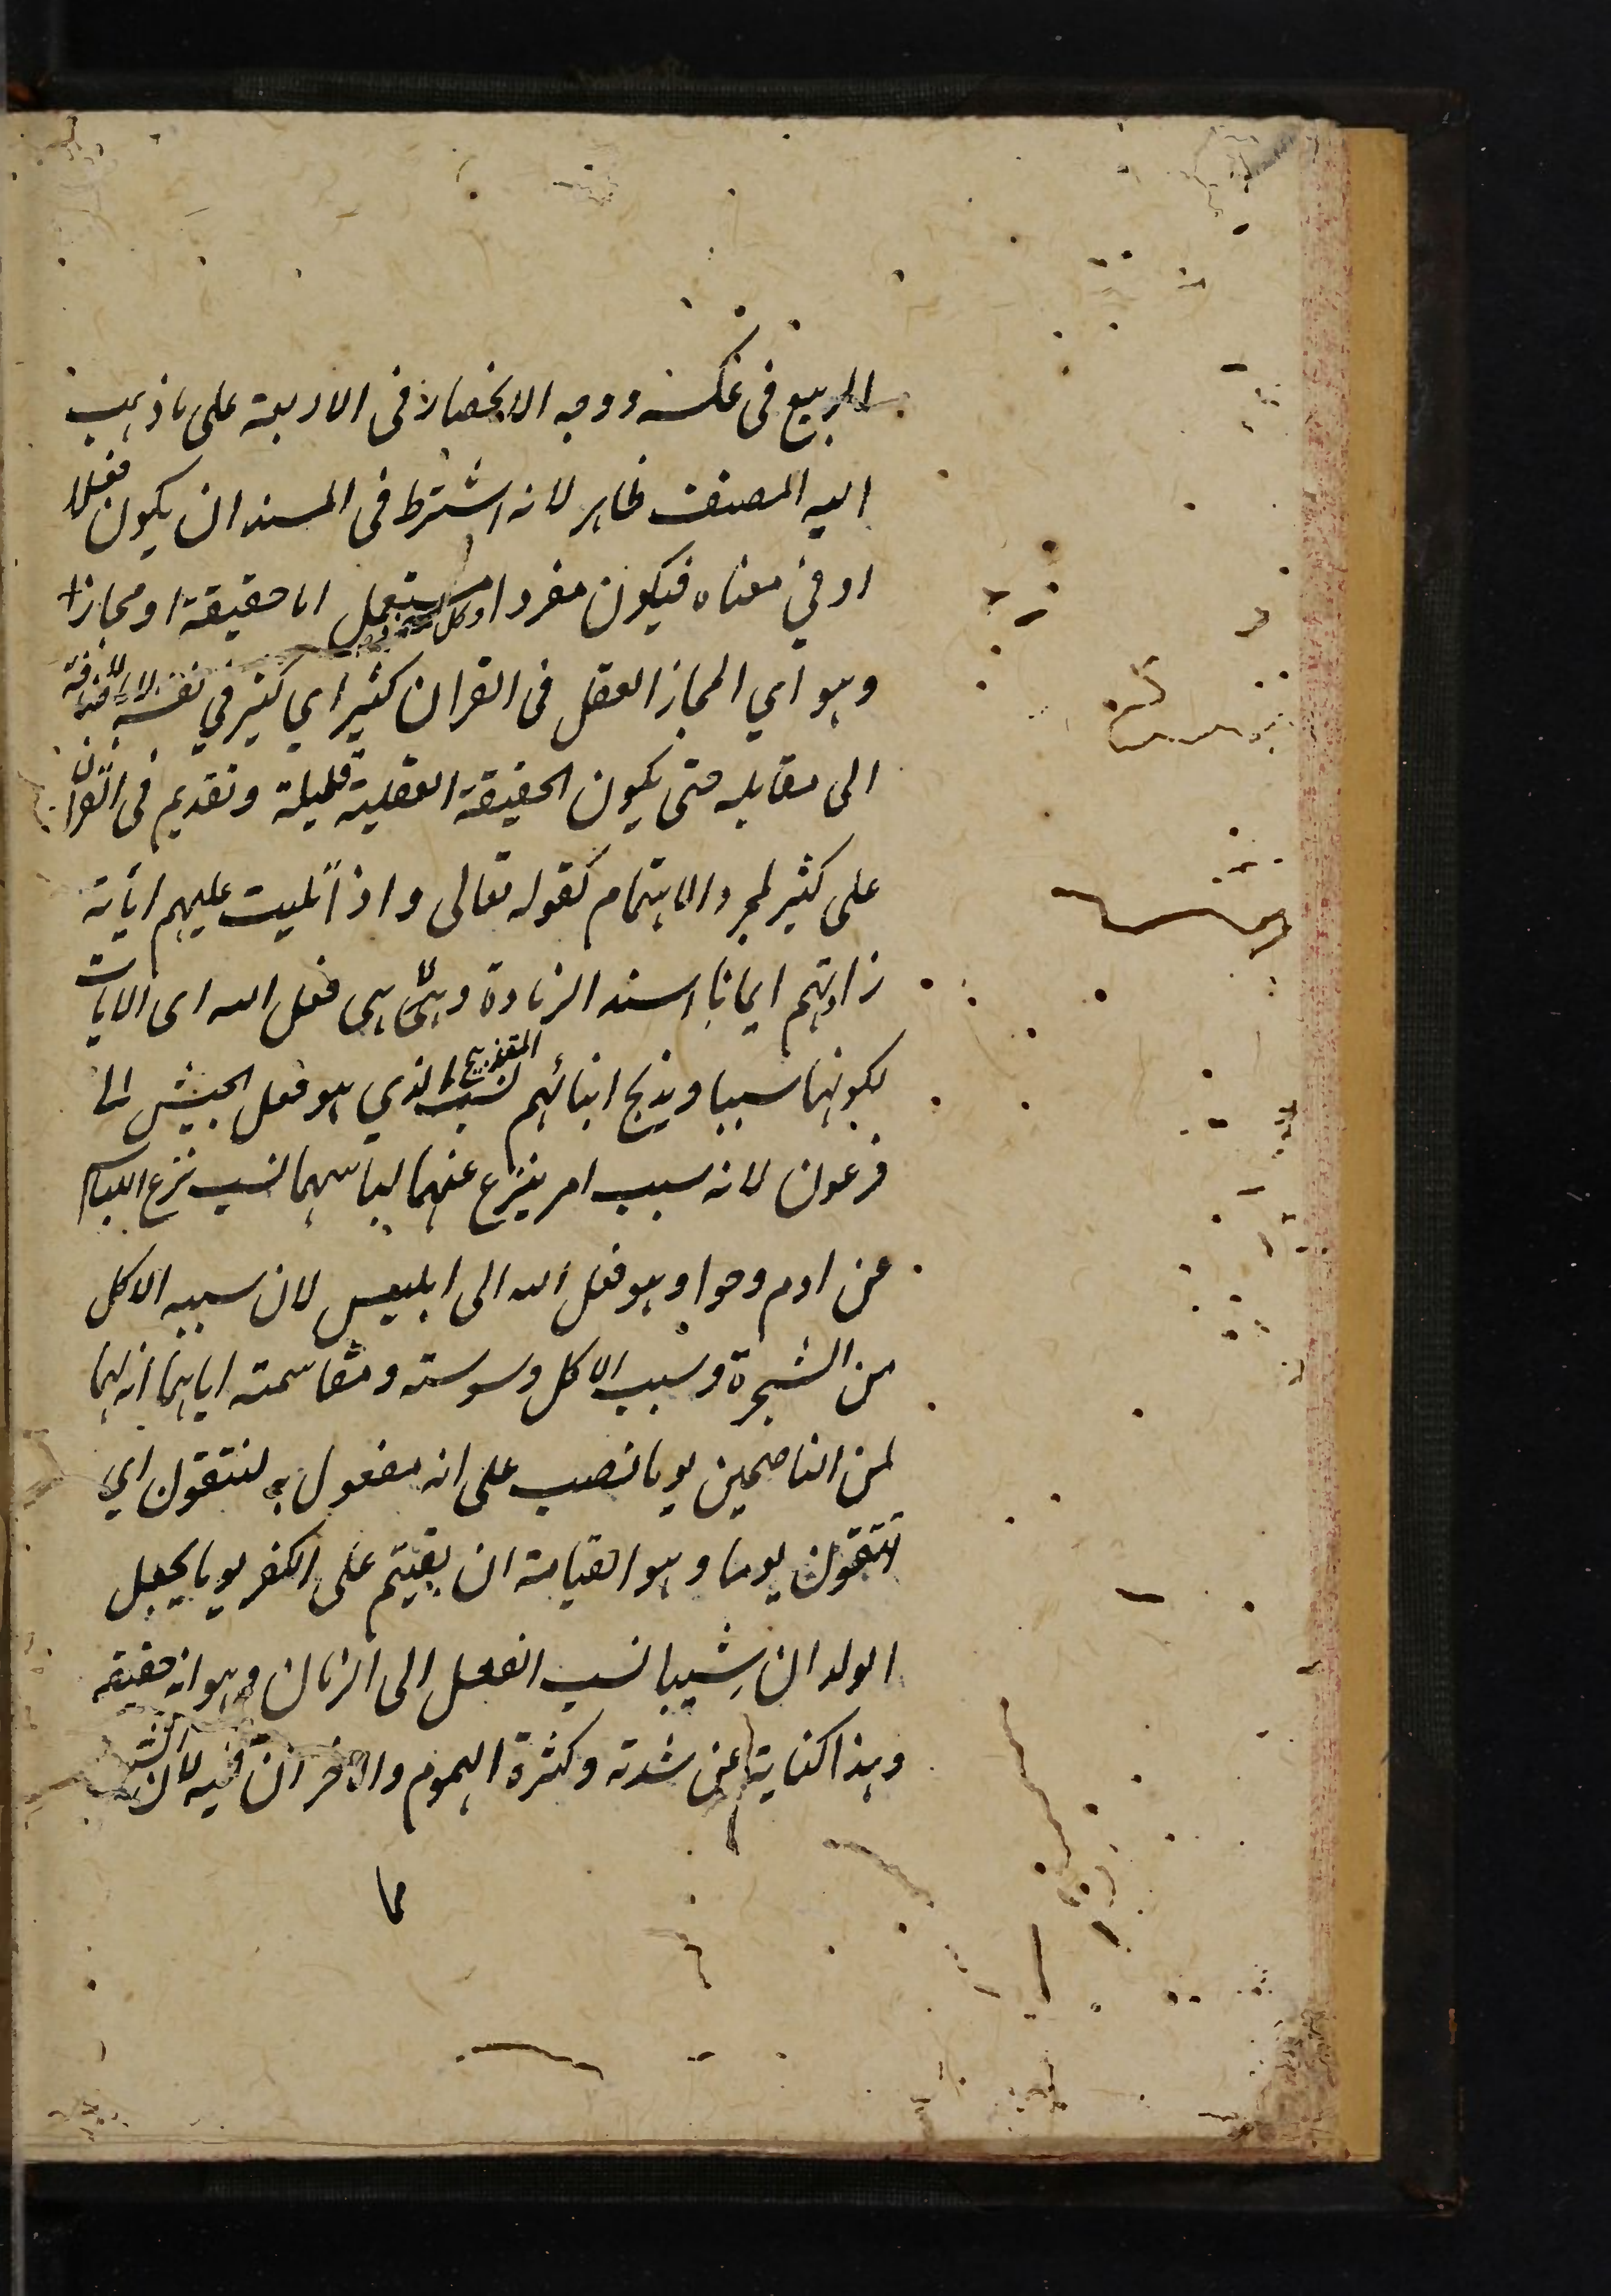 الربيع فى عكسه ووجه الانحصار فى الاربعة على ما ذهب
اليه المصنف ظاهر لانه اشترط فى المسند ان يكون فعلا
او في معناه فيكون مفردا وكل مستعمل اما حقيقة او مجازا
وهو اي المجاز العقلي فى القران كثير اي كثير في نفسه لا بالاضافة
الى مقابله حتى يكون الحقيقة العقلية قليلة وتقديم فى القران
على كثير لمجرد الاهتمام كقوله تعالى واذا تليت عليهم اياته
زادتهم ايمانا اسند الزيادة وهي فعل الله الى الايات
لكونها سببا ويذبح ابنائهم نسب التذبيح الذي هو فعل الجيش الى
فرعون لانه سبب امر ينزع عنهما لباسهما نسب نزع اللباس
عن ادم وحوا وهو فعل الله الى ابليس لان سببه الاكل
من الشجرة وسبب الاكل وسوسته ومقاسمته اياهما انه لهما
لمن الناصحين يوما نصب على انه مفعول به لتتقون اي
تتقون يوما وهو القيامة ان بقيتم على الكفر يوما يجعل
الولدان شيبا نسب الفعل الى الزمان وهو لله حقيقة
وهذا كناية عن شدته وكثرة الهموم والاحزان فيه لان الشيب
مما